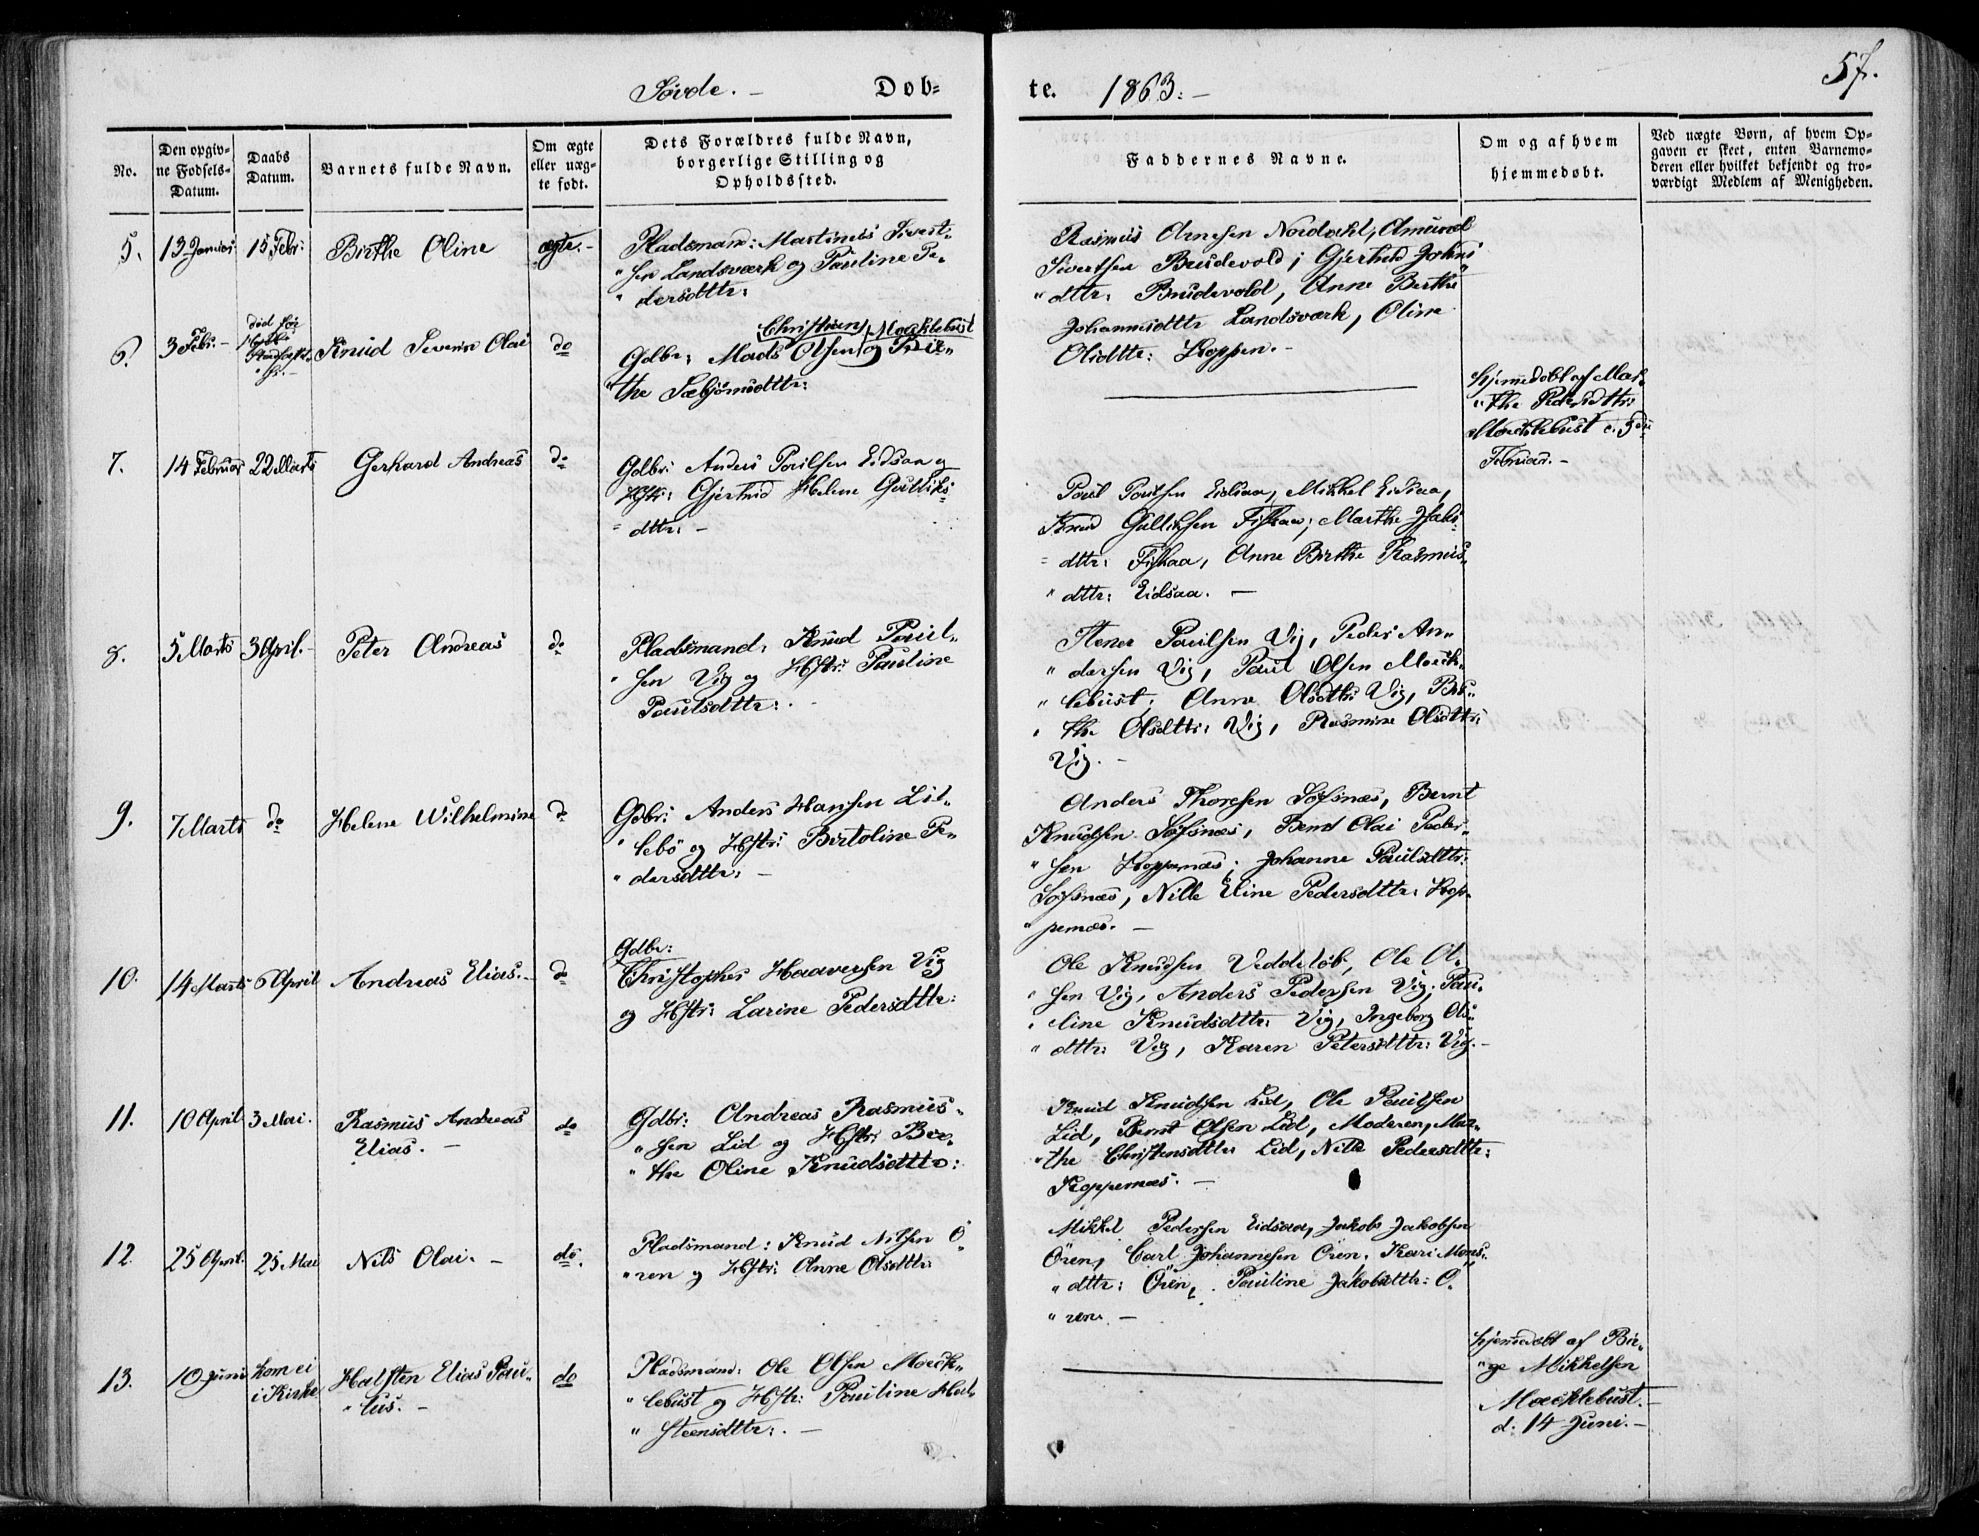 57.
Søvde. – Dob-te. 1863. –
No.
Den opgiv-
ne Fødsels-
Datum.
Daabs
Datum.
Barnets fulde Navn.
Om ægte
eller uæg-
te født.
Dets Forældres fulde Navn,
borgerlige Stilling og
Opholdssted.
Faddernes Navne.
Om og af hvem
hjemmedøbt.
Ved uægte Børn, af hvem Op-
gaven er skeet, enten Barnemo-
deren eller hvilket bekjendt og tro-
værdigt Medlem af Menigheden.
5. 13 Januar 15 Febr: Birthe Oline ægte. –
Pladsmand: Martinus Sivert-
" sen Landsværk og Pauline Pe-
" dersdttr:
Rasmus Arnesen Amund
Sivertsen Brudevold; Gjertrud Johns
" dttr: Brudevold, Anne Berthe
Johannesdttr Landsværk, Oline
Olsdttr: Koppen. –
6. 3 Febr. – død før Knud Severin Olai do
Christian Moeklebust
Gdbr: Mads Olsen og Bir-
" the Sæbjørnsdttr:
hjemmedøbt af Mar-
" the Pedersdttr:
Moecklebust d. 5
Februar. –
7. 14 Februar 22 Marts Gerhard Andreas do
Gdbr: Anders Poulsen Eidsaa og
Hstr: Gjertrud Helene Gulliks-
= dttr: –
Poul Poulsen Eidsaa, Mikkel Eidsaa,
Knud Gulliksen Fiskaa; Marthe
= dttr: Fiskaa, Anne Birthe Rasmus-
" dttr: Eidsaa. –
8. 5 Marts 3 April. – Peter Andreas do
Pladsmand: Knud Poul-
" sen Vig og Hstr: Pauline
Poulsdttr: . –
Stener Poulsen Vig, Peder An-
" dersen Vig, Poul Olsen Moeck-
" lebust; Anne Olsdttr Vig, Bir-
" the Olsdttr: Vig, Rasmine Olsdttr:
Vig. –
9. 7 Marts do Helene Wilhelmine do
Gdbr: Anders Hansen Lil-
" lebø og Hstr: Bertoline Pe-
" dersdttr: –
Anders Thoresen Søfsnæs, Bernt
Knudsen Søfsnæs, Bernt Olai Peder-
" sen Koppernæs; Johanne Poulsdttr:
Søfsnæs, Nille Eline Pedersdttr: Kop-
" pernæs. –
10. 14 Marts 6 April Andreas Elias. – do
Gdbr:
Christopher Haaversen Vig
og Hstr: Larine Pedersdttr:
Ole Knudsen Veddeløb, Ole Ol-
" sen Vig, Anders Pedersen Vig; Pau-
" line Knudsdttr: Vig, Ingeborg Ols-
" dttr: Vig, Karen Petersdttr: Vig. –
11. 10 April 3 Mai. Rasmus Andreas do
Elias. –
Gdbr: Andreas Rasmus-
" sen Lid og Hstr: Ber-
" the Oline Knudsdttr:
Knud Knudsen Lid, Ole Poulsen
Lid, Bernt Olsen Lid, Moderen, Mar-
" the Christensdttr Lid, Nille Pedersdttr:
Koppernæs. –
12. 25 April. 25 Mai Nils Olai. – do.
Pladsmand: Knud Nilsen Ö-
" ren og Hstr: Anne Olsdttr:
Mikkel Pedersen Eidsaa, Jakob Jakobsen
Ören, Carl Johannesen Ören. Kari Mons-
" dttr: Ören, Pauline Jakobsdttr: Ö-
" ren. –
13. 10 Juni kom ei Halsten Elias Pau- do
i Kirke " lus. –
Pladsmand: Ole Olsen Moeck-
" lebust og Hstr: Pauline Hal-
" steensdttr: . –
hjemmedøbt af Bir-
" ge Mikkelsen
Moecklebust. –
d: 14 Juni. –